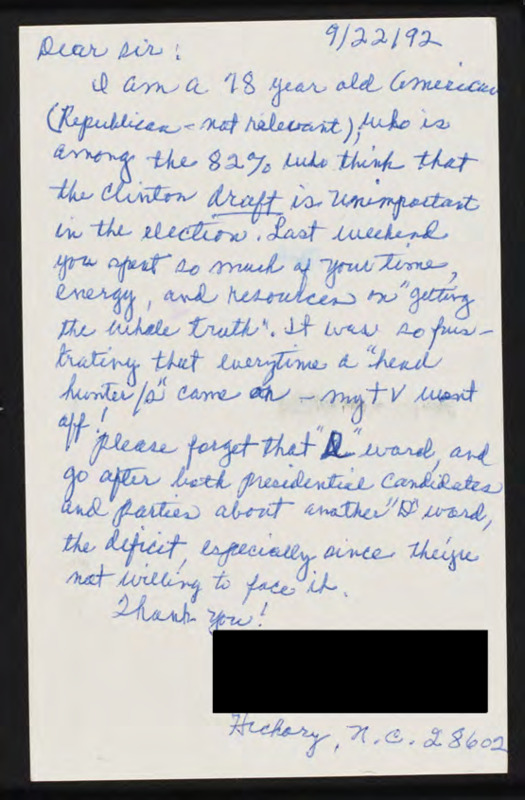 9/22/92
Dear Sir:
I am a 78 year old American
(Republican - not relevant), who is
among the 82% who think that
the Clinton draft is unimportant
in the election. Last weekend
you spent so much of your time,
energy, and resources on "getting
the whole truth". It was so frus-
trating that everytime a "head
hunter/s" came on - my TV went
off!
Please forget that "D" word, and
go after both presidential candidates
and parties about another "D" word,
the deficit, especially since they're
not willing to face it.
Thank you!
Hickory, N.C. 28602